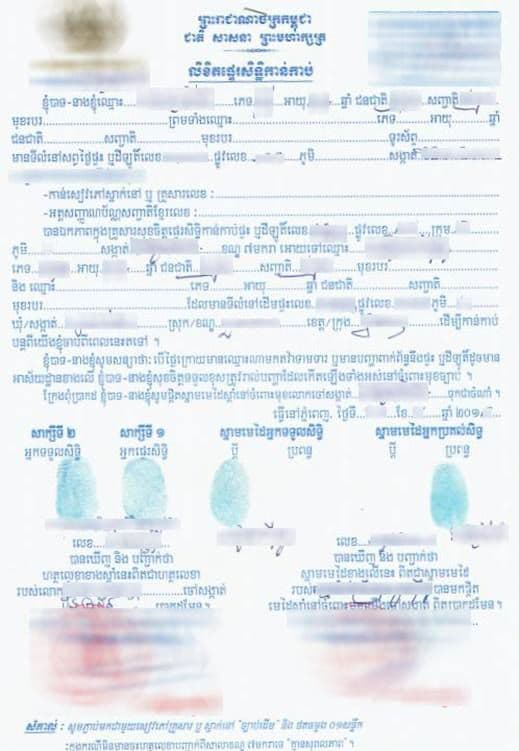 ព្រះរាជាណាចក្រកម្ពុជា
ជាតិ សាសនា ព្រះមហាក្សត្រ
លិខិតផ្ទេរសិទ្ធិកាន់កាប់
ខ្ញុំបាទ-នាងខ្ញុំឈ្មោះ ភេទ អាយុ ឆ្នាំ ជនជាតិ សញ្ជាតិ
មុខរបរ ព្រមទាំងឈ្មោះ ភេទ អាយុ ឆ្នាំ
ជនជាតិ សញ្ជាតិ មុខរបរ ទូរស័ព្ទ
មានទីលំនៅសព្វថ្ងៃផ្ទះ ឬដីឡូត៍លេខ ផ្លូវលេខ ភូមិ សង្កាត់
-កាន់សៀវភៅស្នាក់នៅ ឬ គ្រួសារលេខ :
-អត្តសញ្ញាណប័ណ្ណសញ្ជាតិខ្មែរលេខ :
បានឯកភាពក្នុងគ្រួសារសុខចិត្តផ្ទេរសិទ្ធិកាន់កាប់ផ្ទះ ឬដីឡូត៍លេខ ផ្លូវលេខ ក្រុម
ភូមិ សង្កាត់ ខណ្ឌ ៧មករា អោយទៅឈ្មោះ
ភេទ អាយុ ឆ្នាំ ជនជាតិ សញ្ជាតិ មុខរបរ
និង ឈ្មោះ ភេទ អាយុ ឆ្នាំ ជនជាតិ សញ្ជាតិ
មុខរបរ ដែលមានទីលំនៅដើមផ្ទះលេខ ផ្លូវលេខ ភូមិ
ឃុំ/សង្កាត់ ស្រុក/ខណ្ឌ ខេត្ត/ក្រុង ដើម្បីកាន់កាប់
បន្តពីយើងខ្ញុំចាប់ពីពេលនេះតទៅ ។
ខ្ញុំបាទ-នាងខ្ញុំសូមសន្យាថា: បើថ្ងៃក្រោយមានឈ្មោះណាមកតវ៉ាទាមទារ ឬមានបញ្ហាពាក់ព័ន្ធនឹងផ្ទះ ឬដីឡូត៍ដូចមាន
អាស័យដ្ឋានខាងលើ ខ្ញុំបាទ-នាងខ្ញុំសុខចិត្តទទួលខុសត្រូវរាល់បញ្ហាដែលកើតឡើងទាំងអស់នៅចំពោះមុខច្បាប់ ។
ក្រែងពុំប្រាកដ ខ្ញុំបាទ-នាងខ្ញុំសូមផ្តិតស្នាមមេដៃស្តាំនៅចំពោះមុខលោកចៅសង្កាត់ ទុកជាចំណាំ ។
ធ្វើនៅភ្នំពេញ, ថ្ងៃទី ខែ ឆ្នាំ ២០១
សាក្សីទី ២ សាក្សីទី ១ ស្នាមមេដៃអ្នកទទួលសិទ្ធិ ស្នាមមេដៃអ្នកប្រគល់សិទ្ធិ
អ្នកទទួលសិទ្ធិ អ្នកផ្ទេរសិទ្ធិ ប្តី ប្រពន្ធ ប្តី ប្រពន្ធ
លេខ
បានឃើញ និង បញ្ជាក់ថា
ហត្ថលេខាខាងស្តាំនេះពិតជាហត្ថលេខា
របស់លោក ចៅសង្កាត់
ប្រាកដមែន ។
លេខ
បានឃើញ និង បញ្ជាក់ថា
ស្នាមមេដៃខាងលើនេះ ពិតជាស្នាមមេដៃ
របស់ បានមកផ្តិត
មេដៃស្តាំនៅចំពោះមុខយើងចៅសង្កាត់ ពិតប្រាកដមែន ។
សំគាល់ : សូមភ្ជាប់មកជាមួយសៀវភៅគ្រួសារ ឬ ស្នាក់នៅ "ច្បាប់ដើម" និង ថតចម្លង ០១សន្លឹក
:ក្នុងករណីមិនមានចុះហត្ថលេខាបញ្ជាក់ពីសាលាខណ្ឌ ៧មករាទេ "គ្មានសុពលភាព" ។